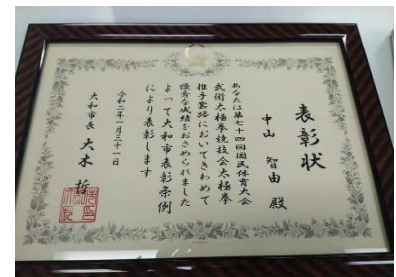 表彰状
中山 智由 殿
あなたは第七十四回国民体育大会
武術太極拳競技会太極拳
推手套路においてきわめて
優秀な成績をおさめられました
よって大和市表彰条例
により表彰します
令和二年一月三十一日
大和市長 大木 哲